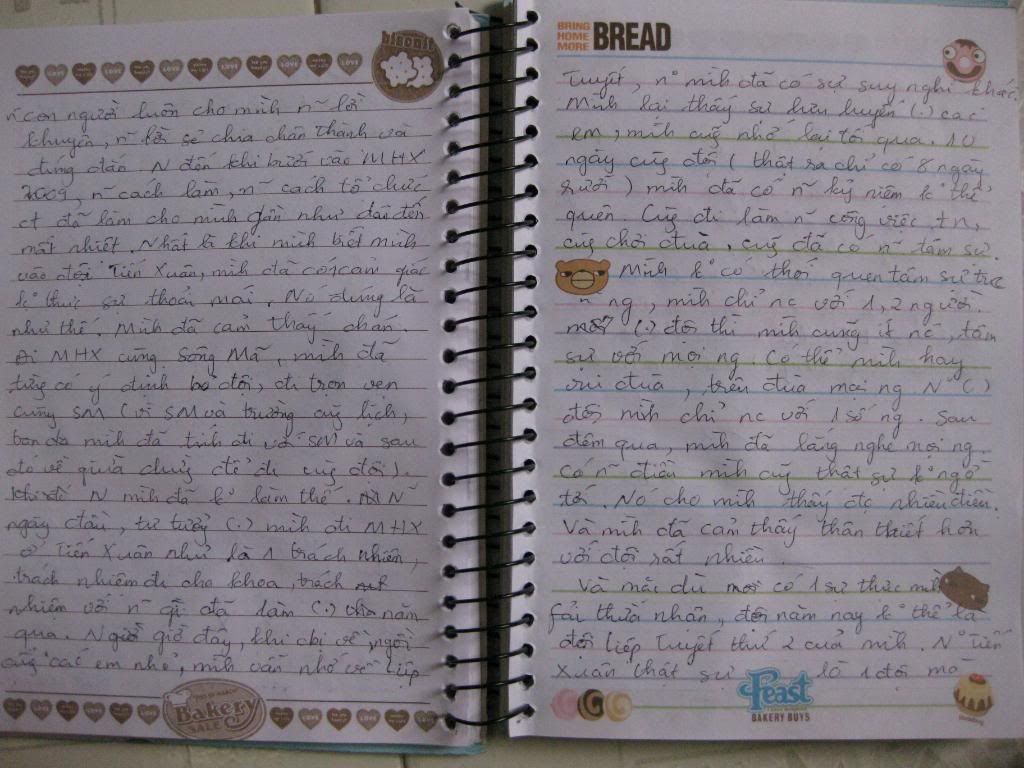 biscuit
ñ con người luôn cho mình ñ lời
khuyên, ñ lời sẻ chia chân thành và
đúng đắn. N đến khi bước vào MHX
2009, ñ cách làm, ñ cách tổ chức
ct đã làm cho mình gần như
mất nhiệt. Nhất là khi mình biết mình
vào đội Tiến Xuân, mình đã có 1 cảm giác
k° thực sự thoải mái. Nó đúng là
như thế. Mình đã cảm thấy chán.
Đi MHX cùng Sông Mã, mình đã
từng có ý định bỏ đội, đi trọn vẹn
cùng SM (vì SM và trường cùg lịch,
ban đa mình đã tính đi với SM và sau
đó về giữa chừg để đi cùg đội).
N mình đã k° làm thế. N
ngày đầu, tư tưởg (.) mình đi MHX
ở Tiến Xuân như là 1 trách nhiên,
trách nhiệm đi cho khoa, trách
nhiệm với ñ gì đã làm (.) năm
qua. Ngay giờ đây, khi chị về ngồi
cùg các em nhỏ, mình vẫn nhớ về Liếp
Bakery
SALE
BRING
HOME
MORE
BREAD
Tuyết, n° mình đã có sự suy nghĩ khác.
Mình lại thấy sự lưu luyến (.) các
em, mình cũg nhớ lại tối qua. 10
ngày cùg đội (thật ra chỉ có 8 ngày
rưỡi) mình đã có ñ kỷ niệm k° thể
quên. Cùg đi làm ñ công việc tn,
cùg chơi đùa, cùg đã có ñ tâm sự.
Mình k° có thói quen tâm sự trc
ñ ng, mình chỉ nc với 1, 2 người.
(.) đội thì mình cũng ít nc, tâm
sự với mọi ng. Có thể mình hay
vui đùa, trêu đùa mọi ng. N° (.)
đội mình chỉ nc với 1 số ng. Sau
đêm qua, mình đã lắng nghe mọi ng.
Có ñ điều mình cũg thật sự k° ngờ
tới. Nó cho mình thấy đc nhiều điều.
Và mình đã cảm thấy thân thiết hơn
với đội rất nhiều.
Và mặc dù có 1 sự thực mìh
fải thừa nhận, đội năm nay k° thể là
đội Liếp Tuyết thứ 2 của mình. N° Tiến
Xuân thật sự là 1 đội mà
Feast
BAKERY BUYS